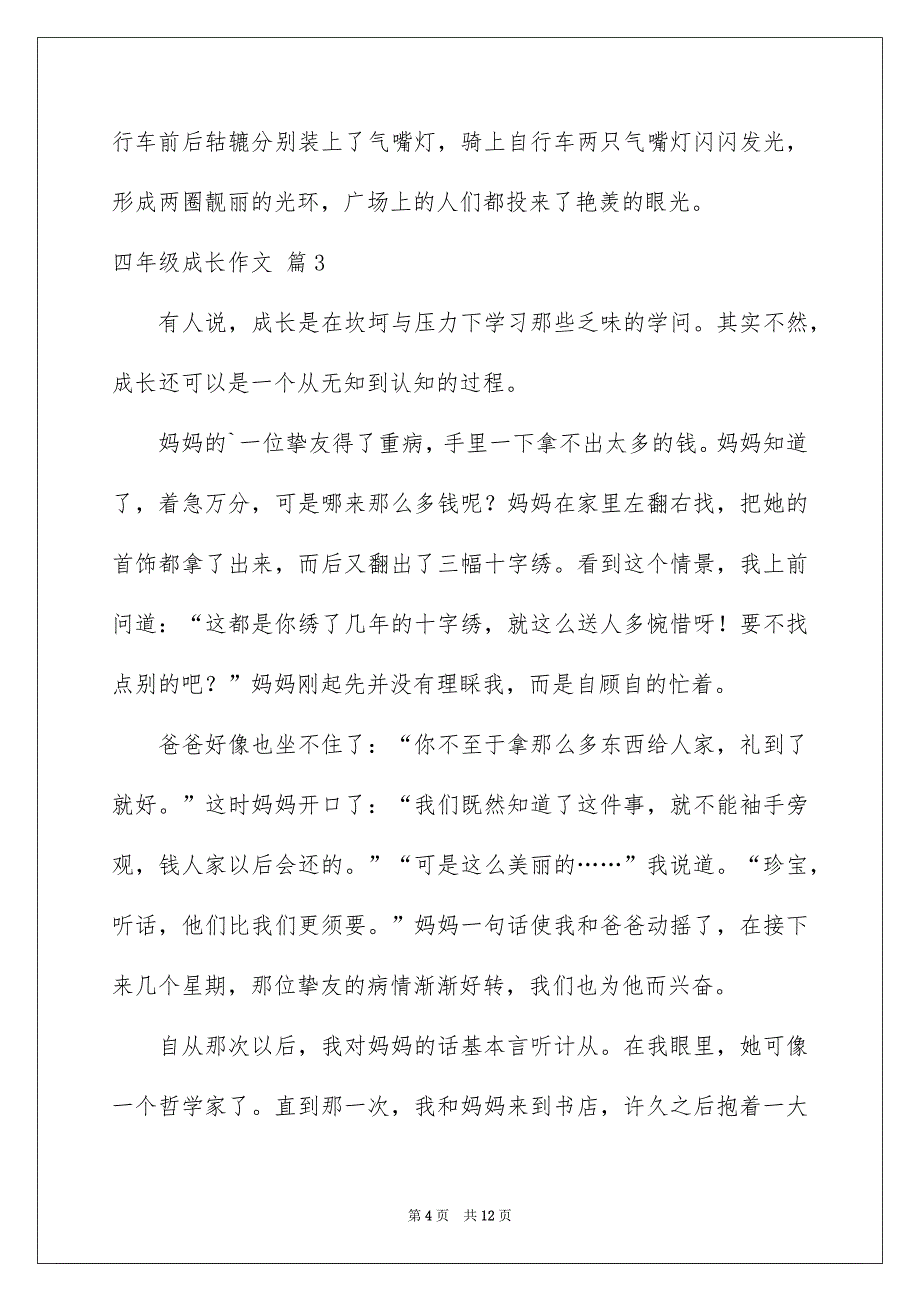 行车前后轱辘分别装上了气嘴灯，骑上自行车两只气嘴灯闪闪发光，
形成两圈靓丽的光环，广场上的人们都投来了艳羡的眼光。
四年级成长作文 篇3
有人说，成长是在坎坷与压力下学习那些乏味的学问。其实不然，
成长还可以是一个从无知到认知的过程。
妈妈的`一位挚友得了重病，手里一下拿不出太多的钱。妈妈知道
了，着急万分，可是哪来那么多钱呢？妈妈在家里左翻右找，把她的
首饰都拿了出来，而后又翻出了三幅十字绣。看到这个情景，我上前
问道：“这都是你绣了几年的十字绣，就这么送人多惋惜呀！要不找
点别的吧？”妈妈刚起先并没有理睬我，而是自顾自的忙着。
爸爸好像也坐不住了：“你不至于拿那么多东西给人家，礼到了
就好。”这时妈妈开口了：“我们既然知道了这件事，就不能袖手旁
观，钱人家以后会还的。”“可是这么美丽的……”我说道。“珍宝，
听话，他们比我们更须要。”妈妈一句话使我和爸爸动摇了，在接下
来几个星期，那位挚友的病情渐渐好转，我们也为他而兴奋。
自从那次以后，我对妈妈的话基本言听计从。在我眼里，她可像
一个哲学家了。直到那一次，我和妈妈来到书店，许久之后抱着一大
第4页 共12页